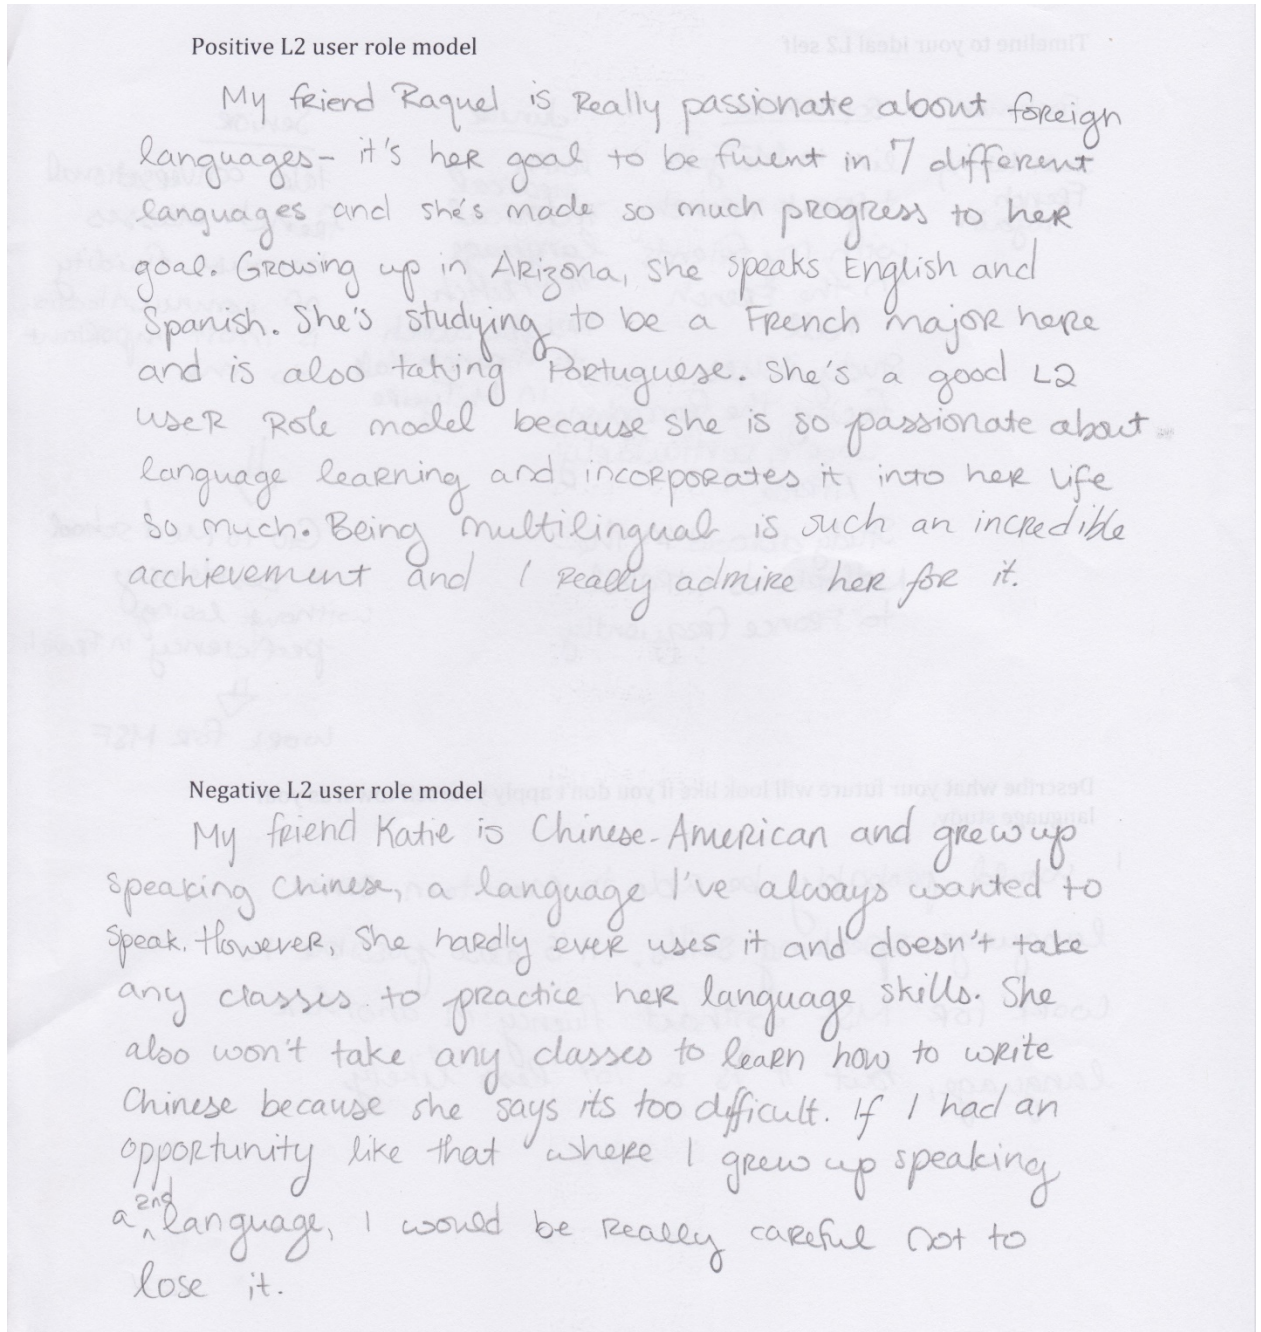 Positive L2 user role model
My friend Raquel is really passionate about foreign
languages- it's her goal to be fluent in 7 different
languages and she's made so much progress to her
goal. Growing up in Arizona, she speaks English and
Spanish. She's studying to be a French major here
and is also taking Portuguese. She's a good L2
user role model because she is so passionate about
language learning and incorporates it into her life
so much. Being multilingual is such an incredible
acchievement and I really admire her for it.
Negative L2 user role model
My friend Katie is Chinese-American and grew up
speaking Chinese, a language I've always wanted to
speak. However, she hardly ever uses it and doesn't take
any classes to practice her language skills. She
also won't take any classes to learn how to write
Chinese because she says its too difficult. If I had an
opportunity like that where I grew up speaking
a 2nd language, I would be really careful not to
lose it.